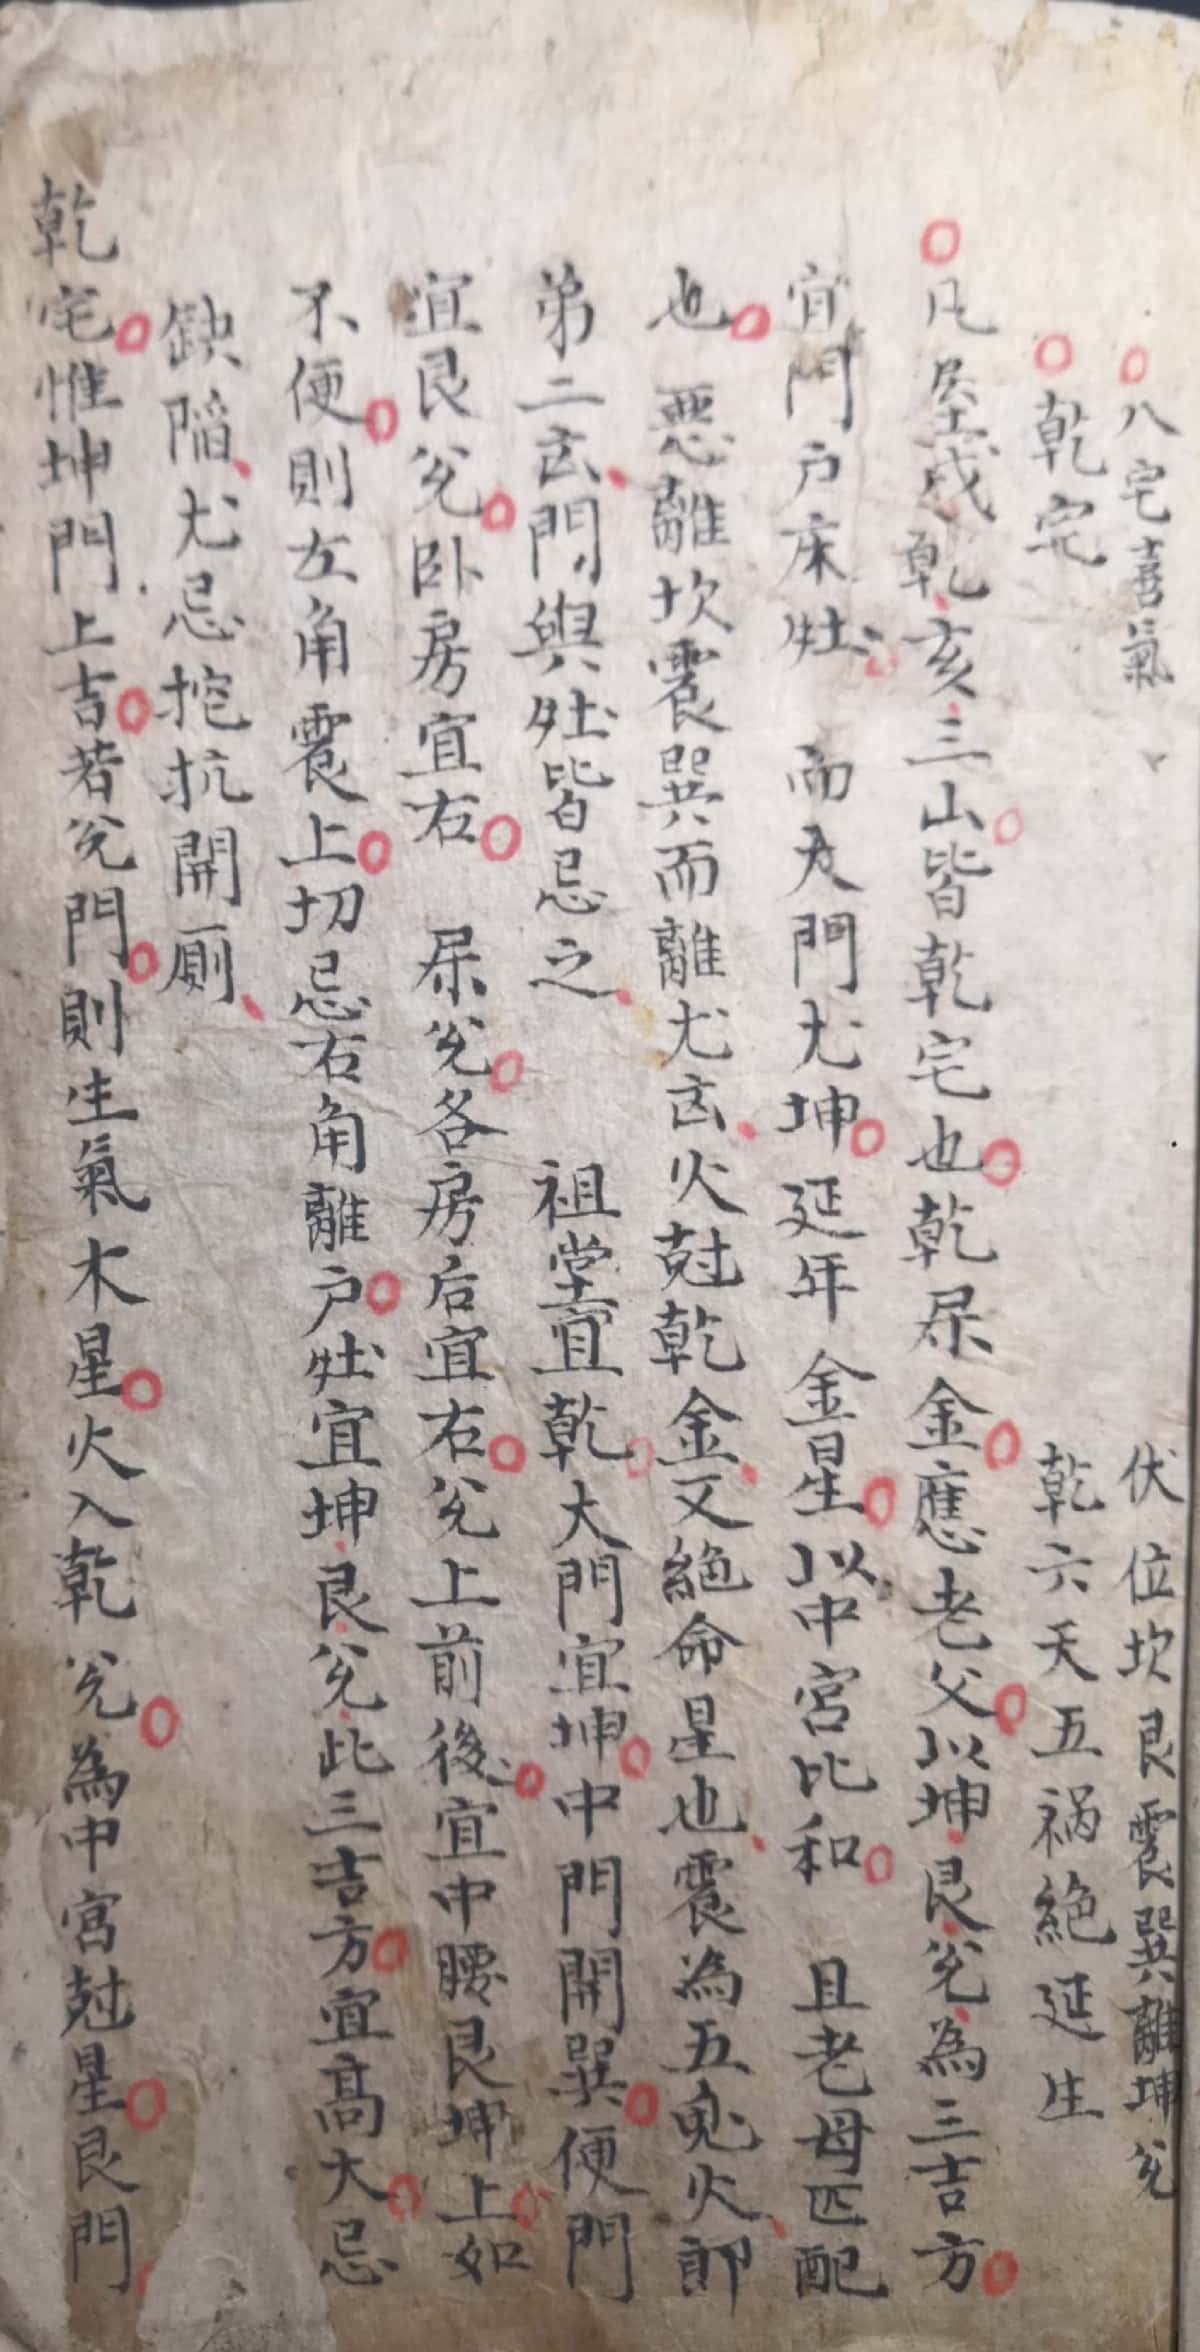 八宅喜氣 伏位坎艮震巽離坤兌
乾宅 乾六天五禍絕延生
凡坐戌乾亥三山皆乾宅也乾屎金應老父以坤艮兌為三吉方
宜門户床灶 而大門尤坤延年金星以中宮比和 且老母匹配
也 惡離坎震巽而離尤凶火尅乾金又絕命星也震為五鬼火即
弟二凶門與灶皆忌之 祖堂宜乾大門宜坤中門開巽便門
宜艮兌卧房宜右 屎兌各房后宜右兌上前後宜中腰艮坤上如
不便則左角震上切忌右角離户灶宜坤艮兌此三吉方宜高大忌
缺陷尤忌挖抗開厠
乾宅惟坤門上吉若兌門則生氣木星火入乾兌為中宮尅星艮門